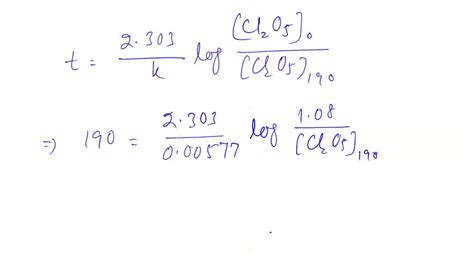 t = 2.303/k log [Cl₂O₅]₀/[Cl₂O₅]₁₉₀
⇒ 190 = 2.303/0.00577 log 1.08/[Cl₂O₅]₁₉₀